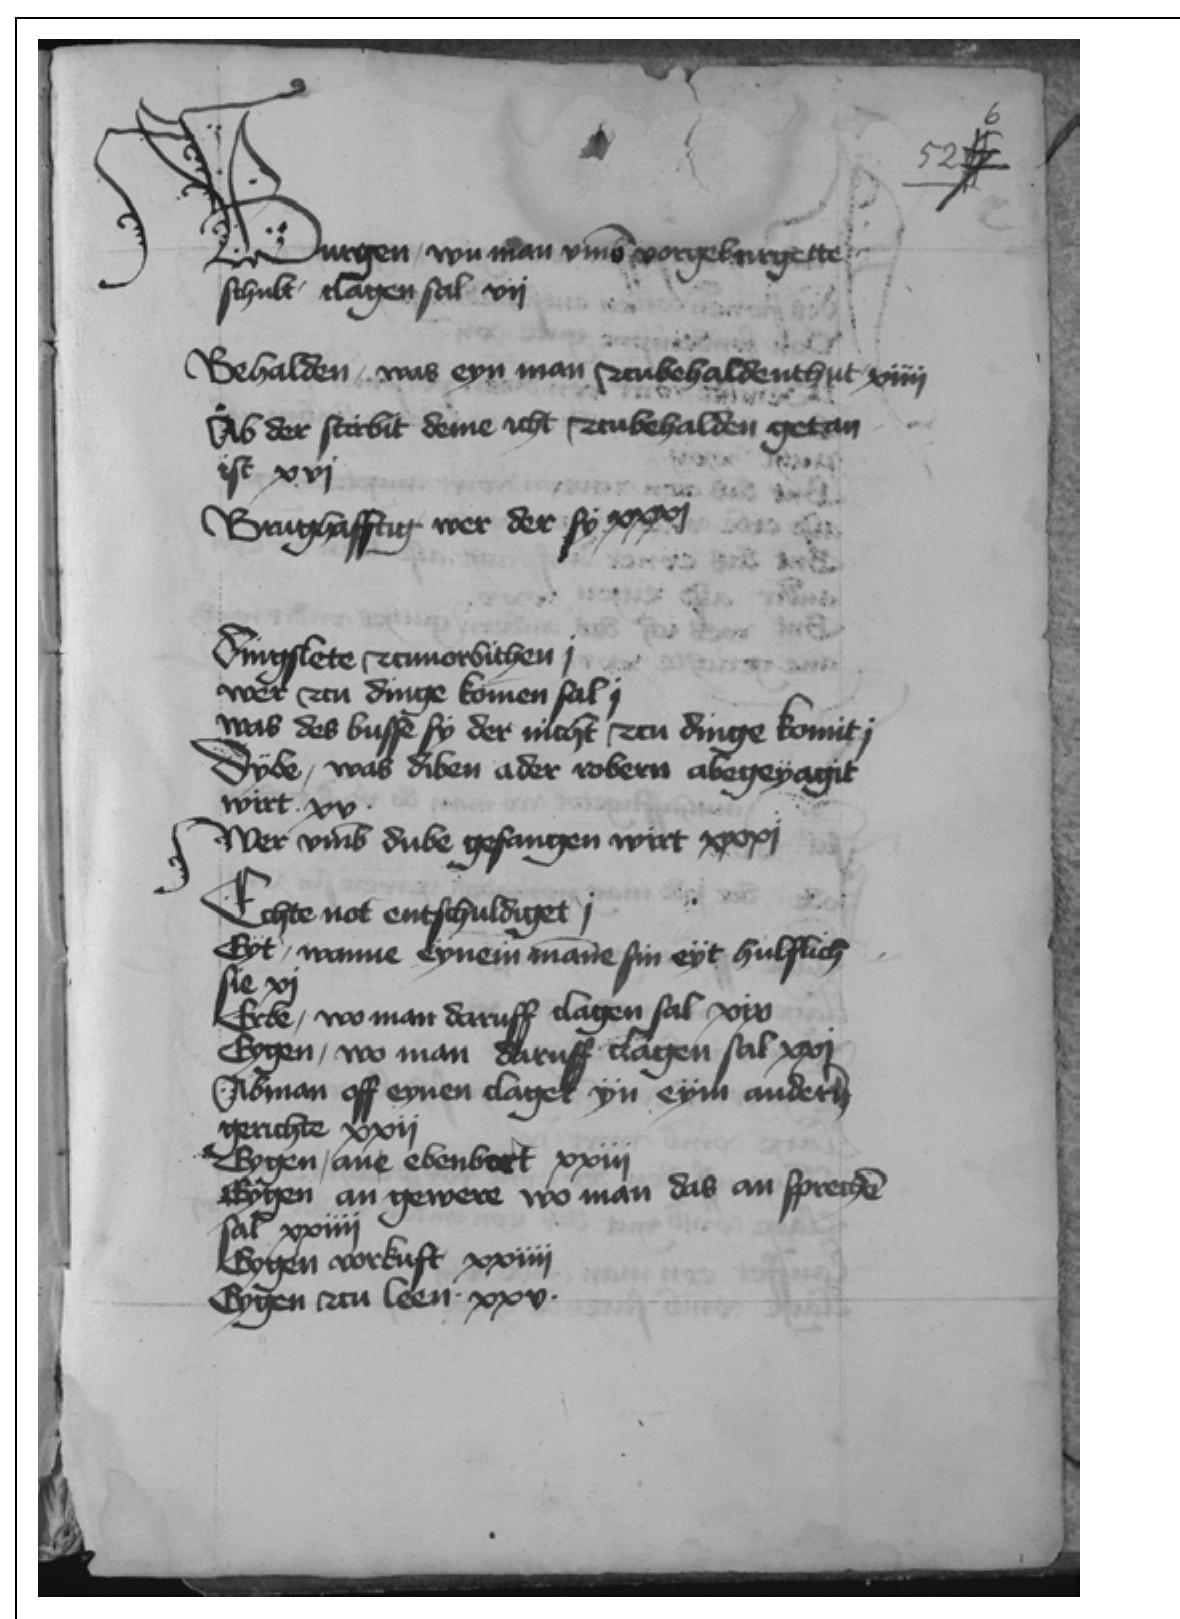 6
52
Burgen / wu man vmb vorgeburgette
schult / clagen sal vij
Behalden / was eyn man zcubehaldenthut xiiii
Ab der stirbit deme icht zcubehalden getan
ist xvj
Brughafftig wer der sy xxxj
Dingslete zcuuorbithen j
wer zcu dinge komen sal j
was des busse sy der nicht zcu dinge komit j
Dÿbe / was diben ader robern abegeyagit
wirt xv
Wer vmb dube gefangen wirt xxxj
Echte not entschuldiget j
Eyt / wanne eynem manne sin eyt hulflich
sie xj
Erbe / wo man daruff clagen sal xix
Eygen / wo man daruff clagen sal xxj
Ab man off eynen claget yn eym andern
gerichte xxij
Eygen / ane ebenbort xxiij
Eygen an gewere wo man das an sprechē
sal xxiiij
Eygen vorkuft xxiiij
Eygen zcu leen xxv